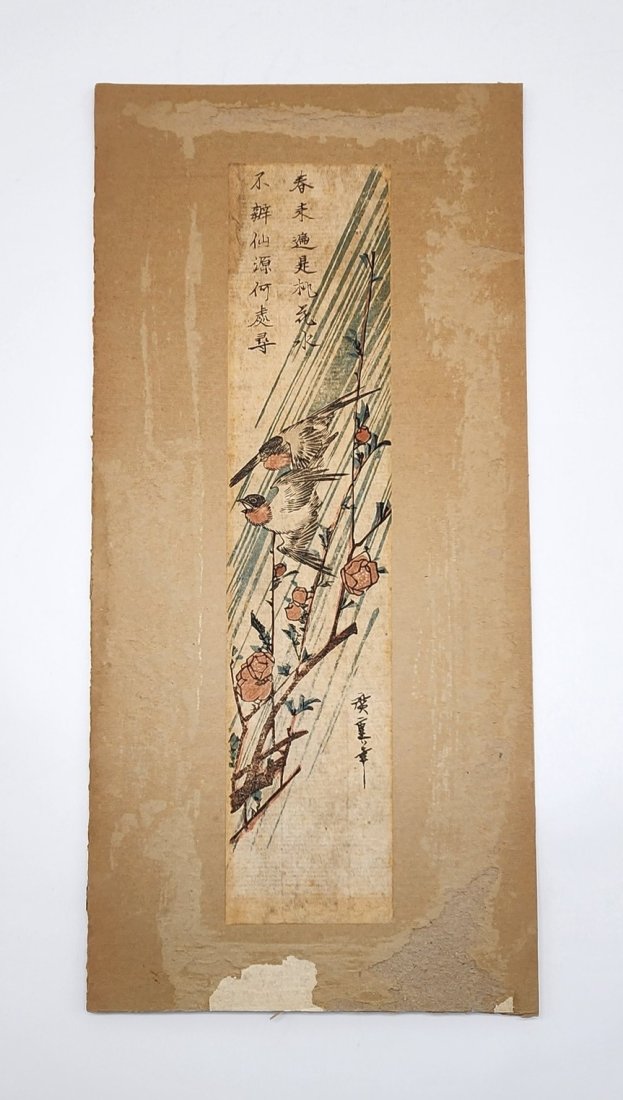 春来遍是桃花水
不辨仙源何處尋
廣重筆